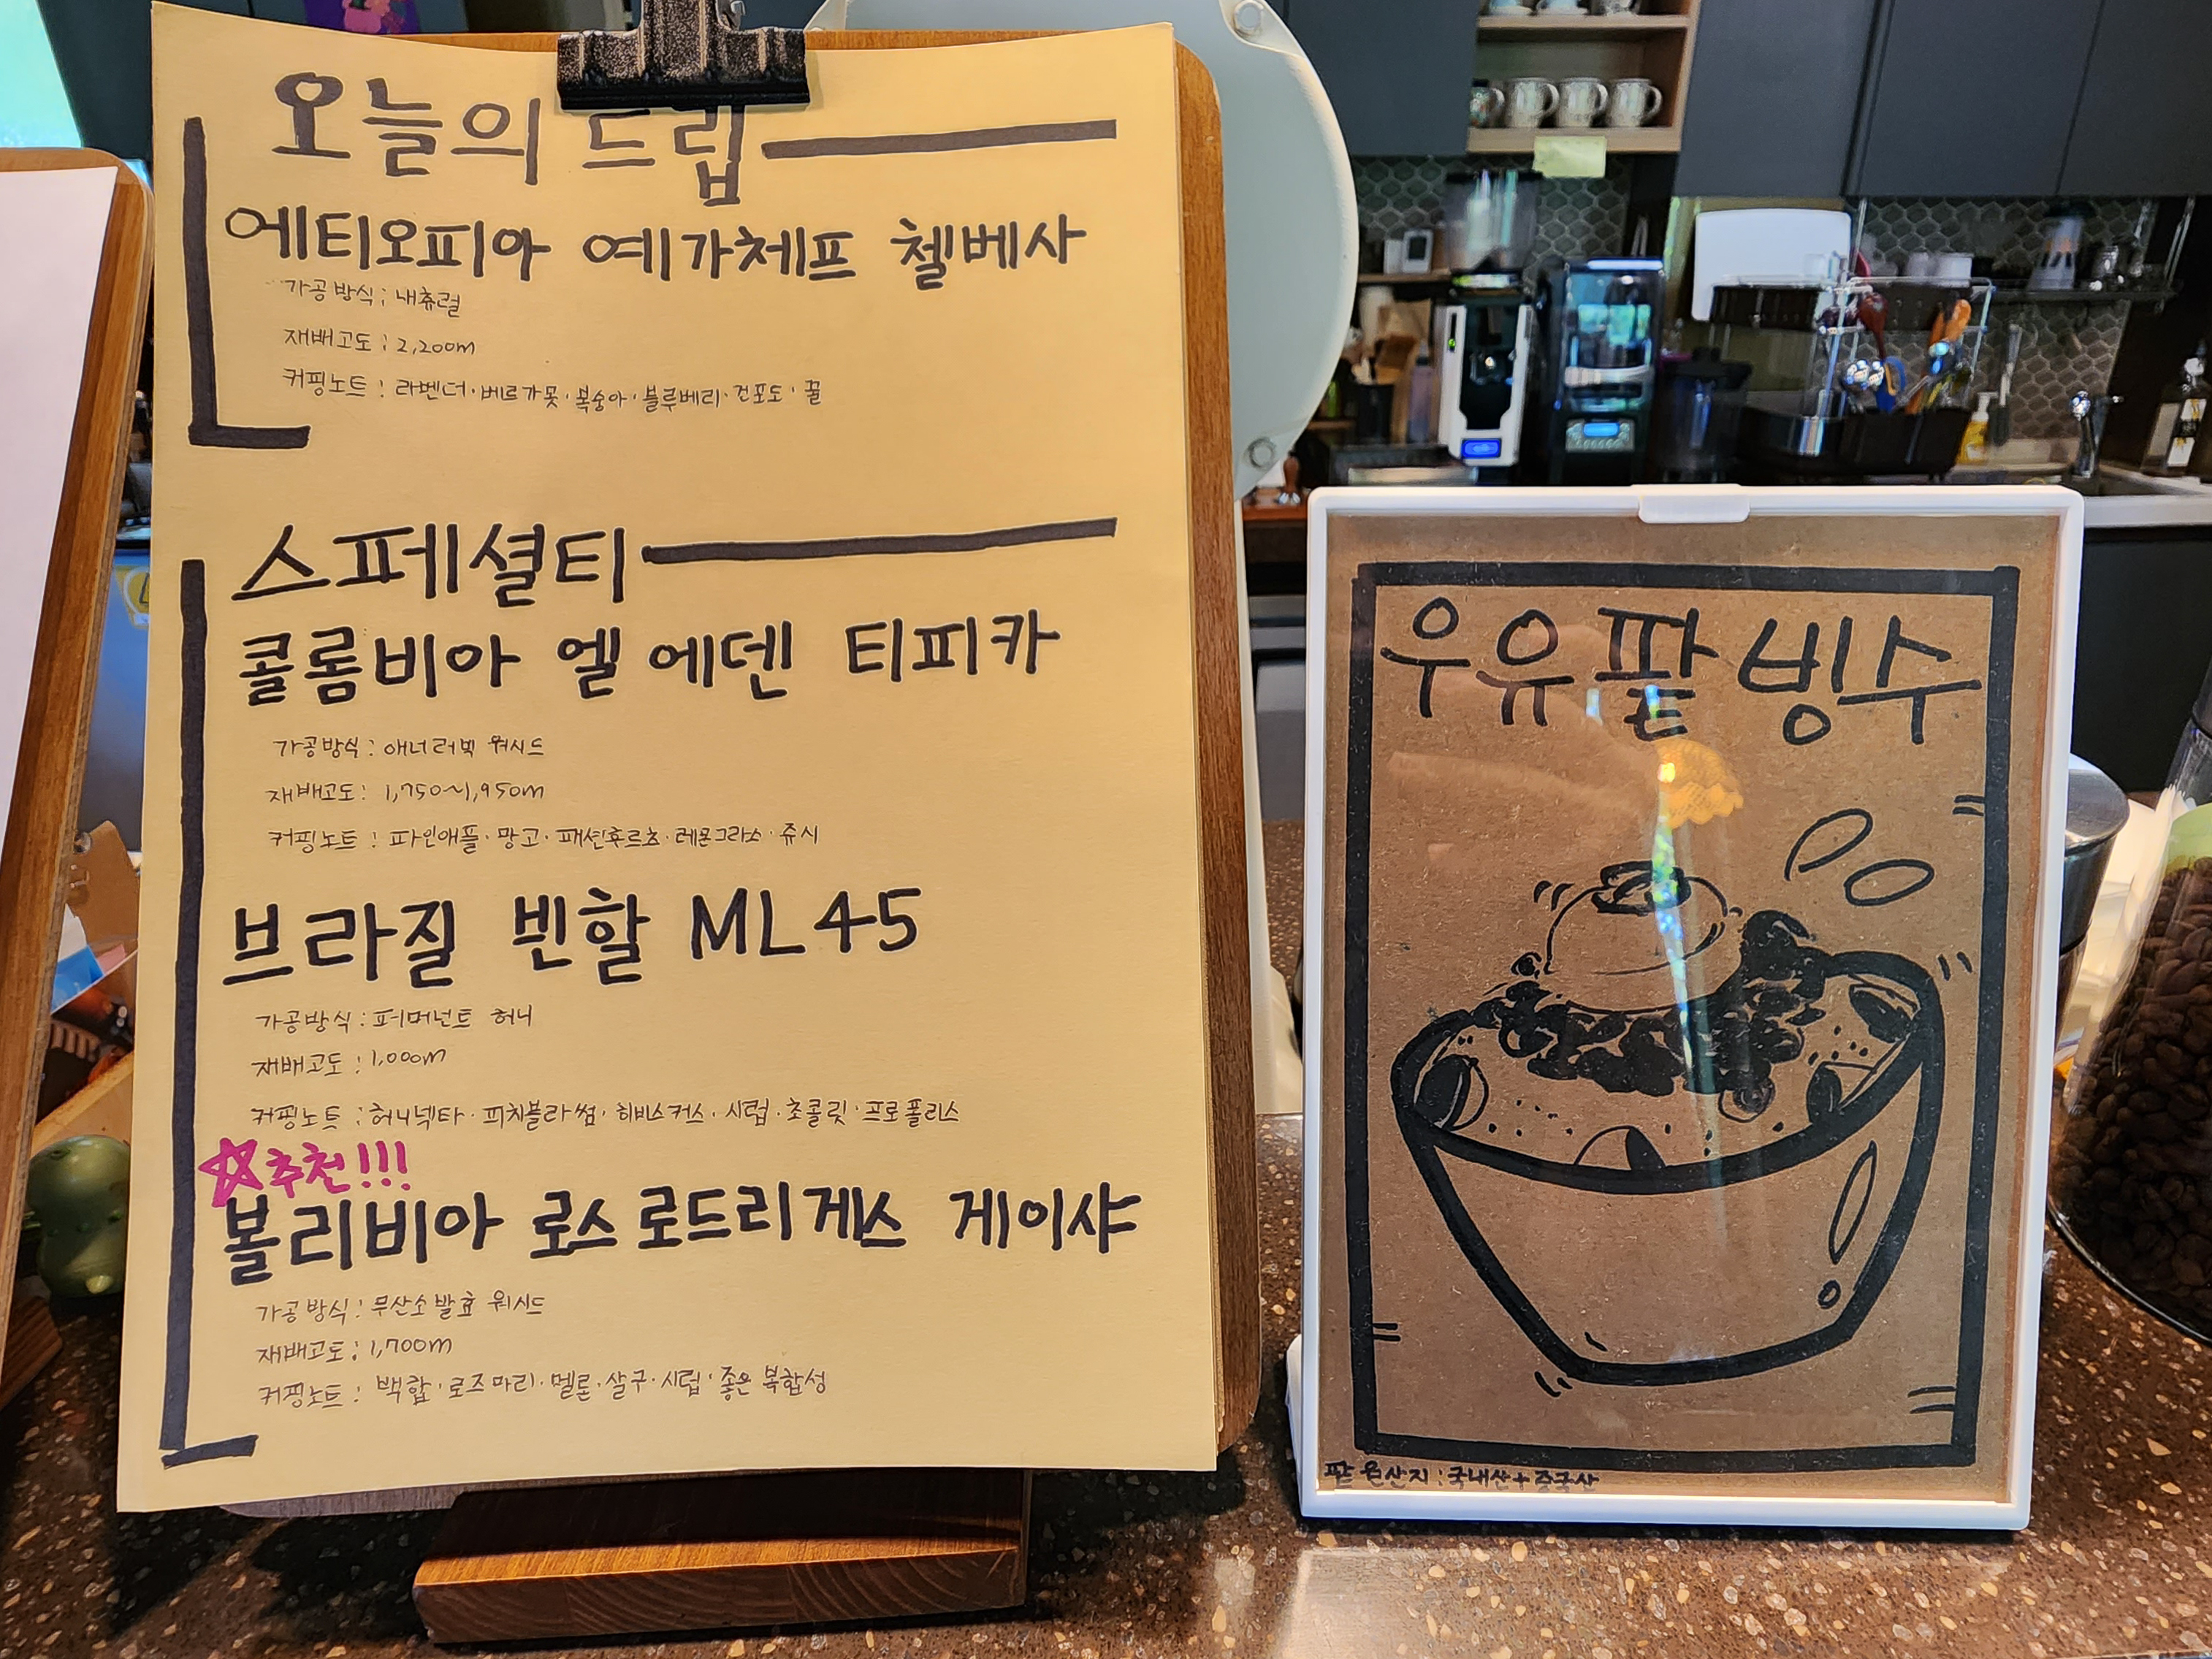 오늘의 드립
에티오피아 예가체프 첼베사
가공방식: 내츄럴
재배고도: 2,200m
커핑노트: 라벤더·베르가못·복숭아·블루베리·건포도·꿀
스페셜티
콜롬비아 엘 에덴 티피카
가공방식: 애너러빅 워시드
재배고도: 1,750~1,950m
커핑노트: 파인애플·망고·패션후르츠·레몬그라스·쥬시
브라질 빈할 ML45
가공방식: 퍼머넌트 허니
재배고도: 1,000m
커핑노트: 허니넥타·피치블라썸·히비스커스·시럽·초콜릿·프로폴리스
☆추천!!!
볼리비아 로스 로드리게스 게이샤
가공방식: 무산소발효 워시드
재배고도: 1,700m
커핑노트: 백합·로즈마리·멜론·살구·시럽·좋은 복합성
우유팥빙수
팥 원산지: 국내산+중국산